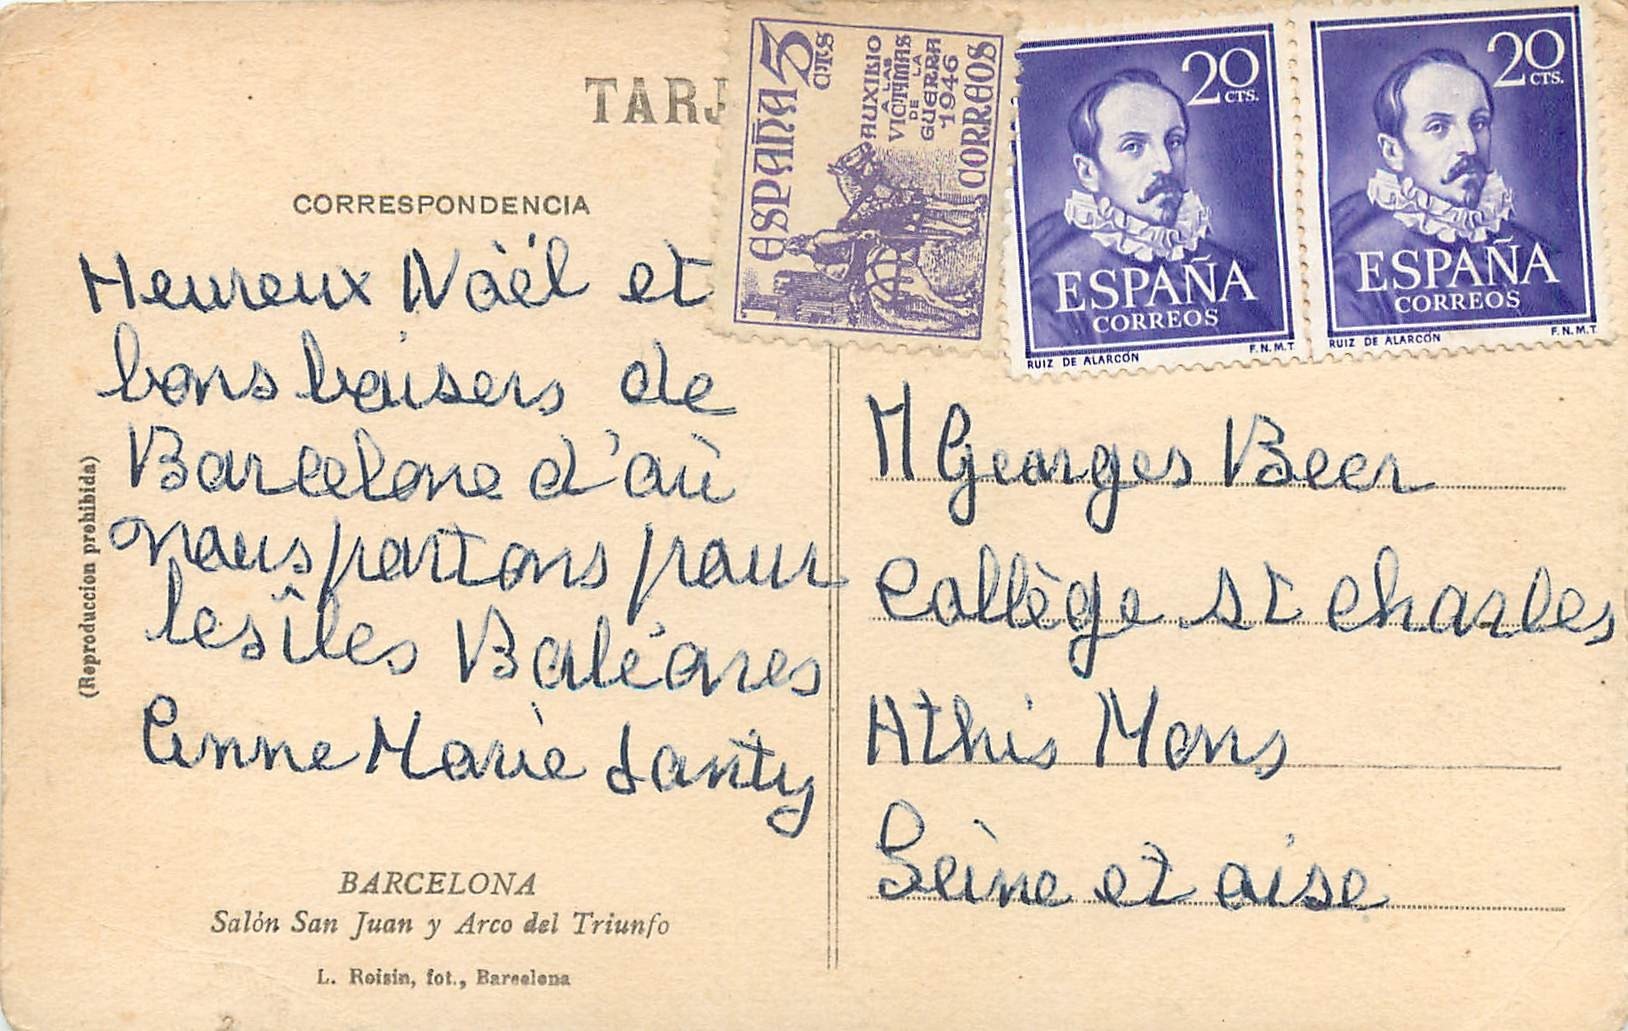 TARJ
CORRESPONDENCIA
Heureux Noël et
bons baisers de
Barcelone d'où
nous partons pour
les îles Baléares
Anne Marie Santy
(Reproduccion prohibida)
BARCELONA
Salón San Juan y Arco del Triunfo
L. Roisin, fot., Barcelona
ESPAÑA 5 CTS
AUXILIO
A LAS
VICTIMAS
DE LA
GUERRA
1946
CORREOS
20 CTS.
ESPAÑA
CORREOS
RUIZ DE ALARCÓN F.N.M.T.
20 CTS.
ESPAÑA
CORREOS
RUIZ DE ALARCÓN F.N.M.T.
M Georges Beer
Collège St Charles
Athis Mons
Seine et oise